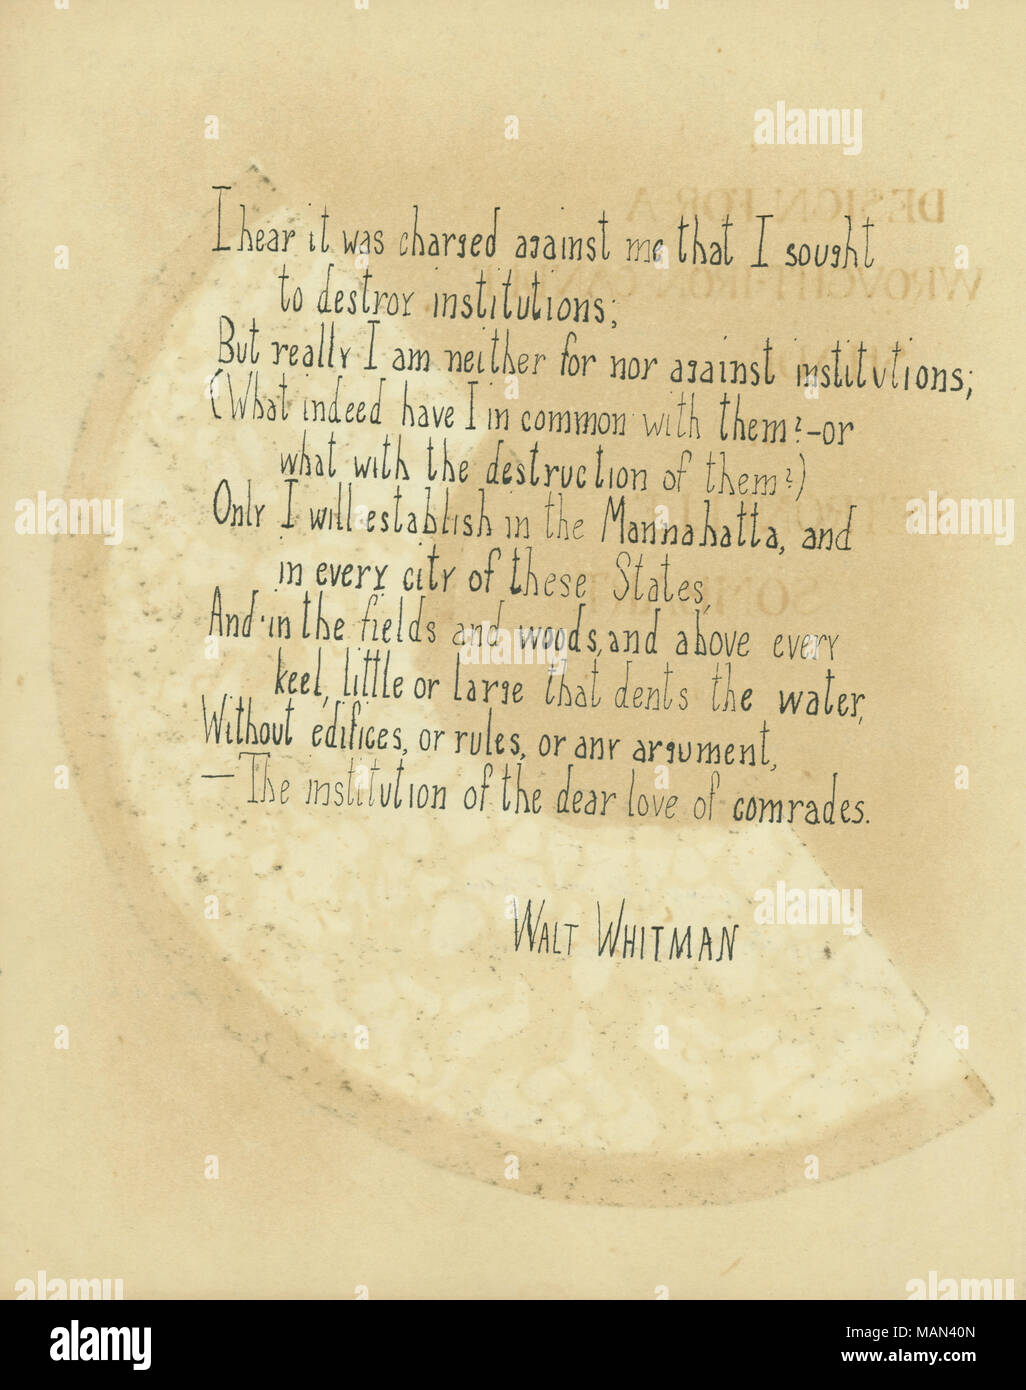 I hear it was charged against me that I sought
to destroy institutions;
But really I am neither for nor against institutions;
(What indeed have I in common with them?—or
what with the destruction of them?)
Only I will establish in the Mannahatta, and
in every city of these States,
And in the fields and woods, and above every
keel, little or large that dents the water,
Without edifices, or rules, or any argument,
—The institution of the dear love of comrades.
WALT WHITMAN
DESIGN FOR A
alamy
Image ID: MAN40N
www.alamy.com